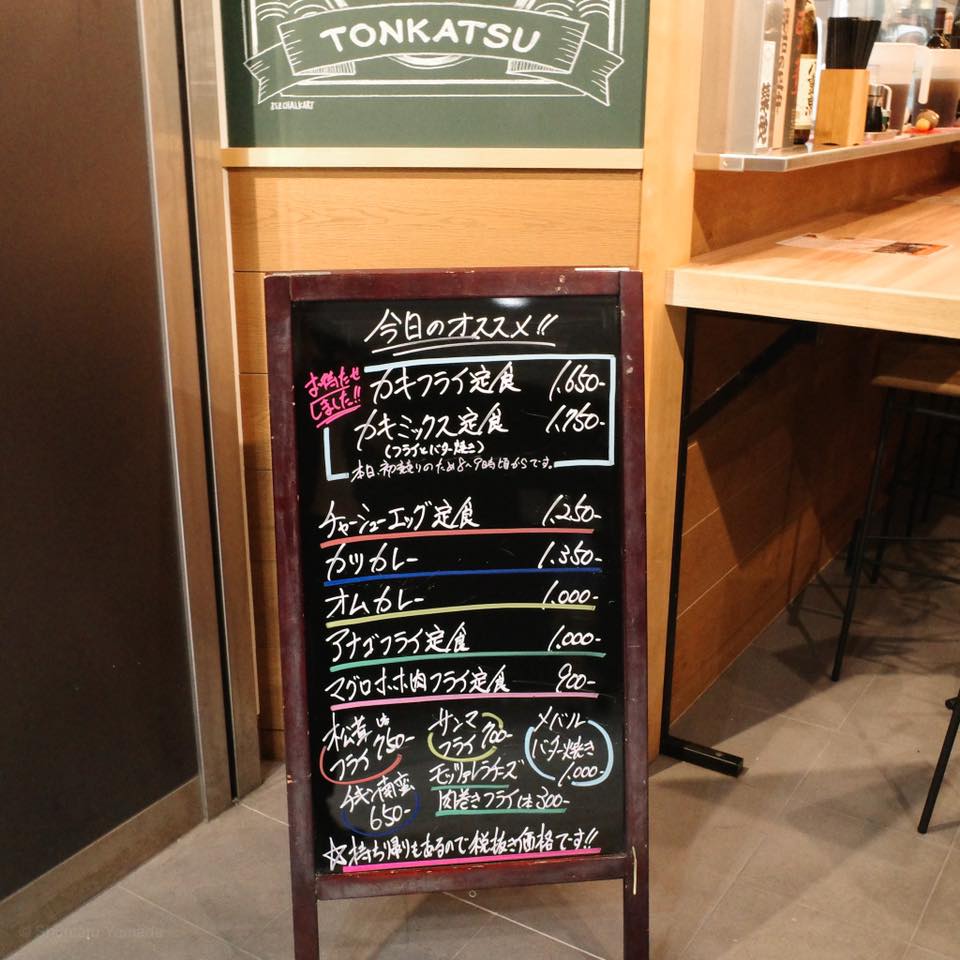 TONKATSU
今日のオススメ!!
お待たせ
しました!!
カキフライ定食 1,650-
カキミックス定食 1,750-
(フライとバター焼き)
チャーシューエッグ定食 1,250-
カツカレー 1,350-
オムカレー 1,000-
アナゴフライ定食 1,000-
マグロホホ肉フライ定食 900-
松茸
フライ 750-
チキン南蛮
650-
サンマ
フライ 700-
モッツァレラチーズ
肉巻きフライ1本300-
メバル
バター焼き
1,000-
☆持ち帰りもあるので税抜き価格です!!
© Shuntaro Yamada